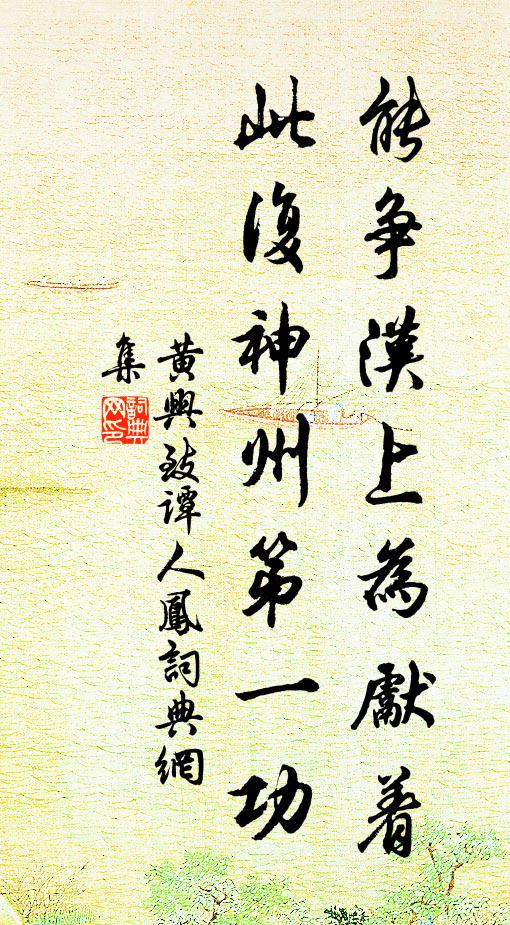 能争漢上為獻着
此復神州第一功
黄興致譚人鳳詞典網
集
詞典網印